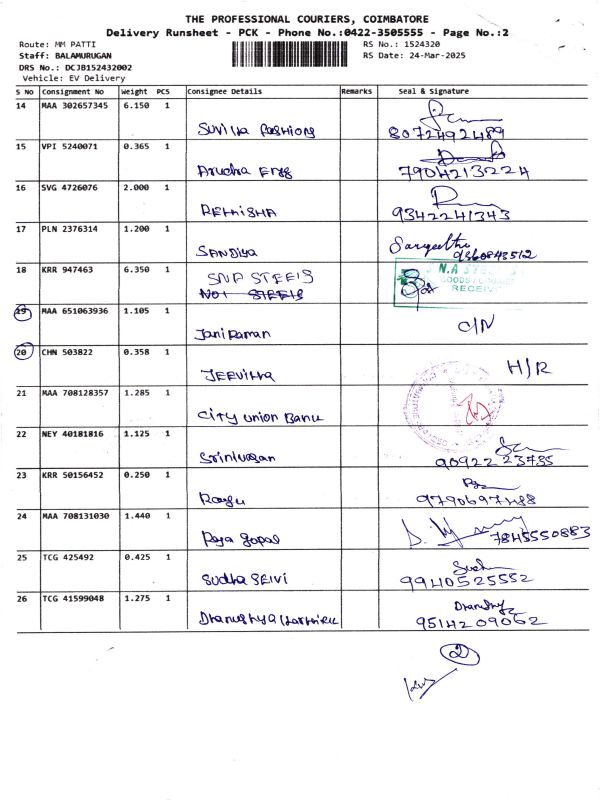 THE PROFESSIONAL COURIERS, COIMBATORE
Delivery Runsheet - PCK - Phone No.:0422-3505555 - Page No.:2
Route: MM PATTI
RS No.: 1524320
Staff: BALAMURUGAN
RS Date: 24-Mar-2025
DRS No.: DCJB152432002
Vehicle: EV Delivery
S No Consignment No Weight PCS Consignee Details Remarks Seal & Signature
14 MAA 302657345 6.150 1
Suvitha Fashions 8072492489
15 VPI 5240071 0.365 1
Arudra Engg 7904213224
16 SVG 4726076 2.000 1
REHISHA 9342241343
17 PLN 2376314 1.200 1
SANDIYA Sangeetha 9360843512
18 KRR 947463 6.350 1
SNA STEELS
S.N.A STEELS
RECEIV
19 MAA 651063936 1.105 1
Janiraman C/N
20 CHN 503822 0.358 1
JEEVITHA H/R
21 MAA 708128357 1.285 1
City Union Bank
22 NEY 40181816 1.125 1
Srinivasan 90922 23735
23 KRR 50156452 0.250 1
Ragu 9790697488
24 MAA 708131030 1.440 1
Raja gopal 7845550883
25 TCG 425492 0.425 1
Sudha SELVI 9940525552
26 TCG 41599048 1.275 1
Dhanushya 9514209062
2